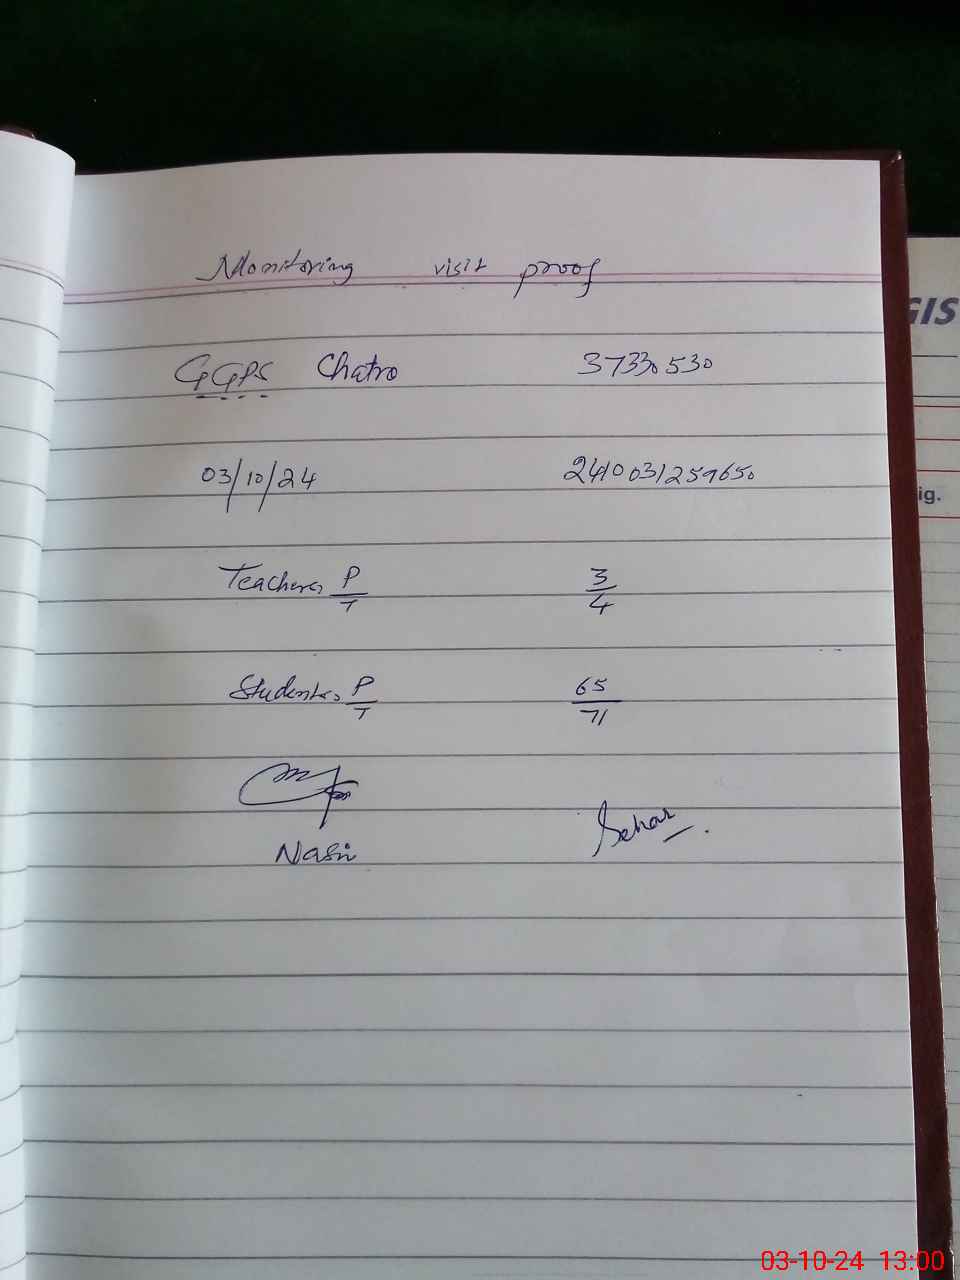 Monitoring visit proof
GIS
GGPS Chatro 37330530
03/10/24 2410031259650
ig.
Teachers P/T 3/4
Students P/T 65/71
Nasir
Sehar
03-10-24 13:00